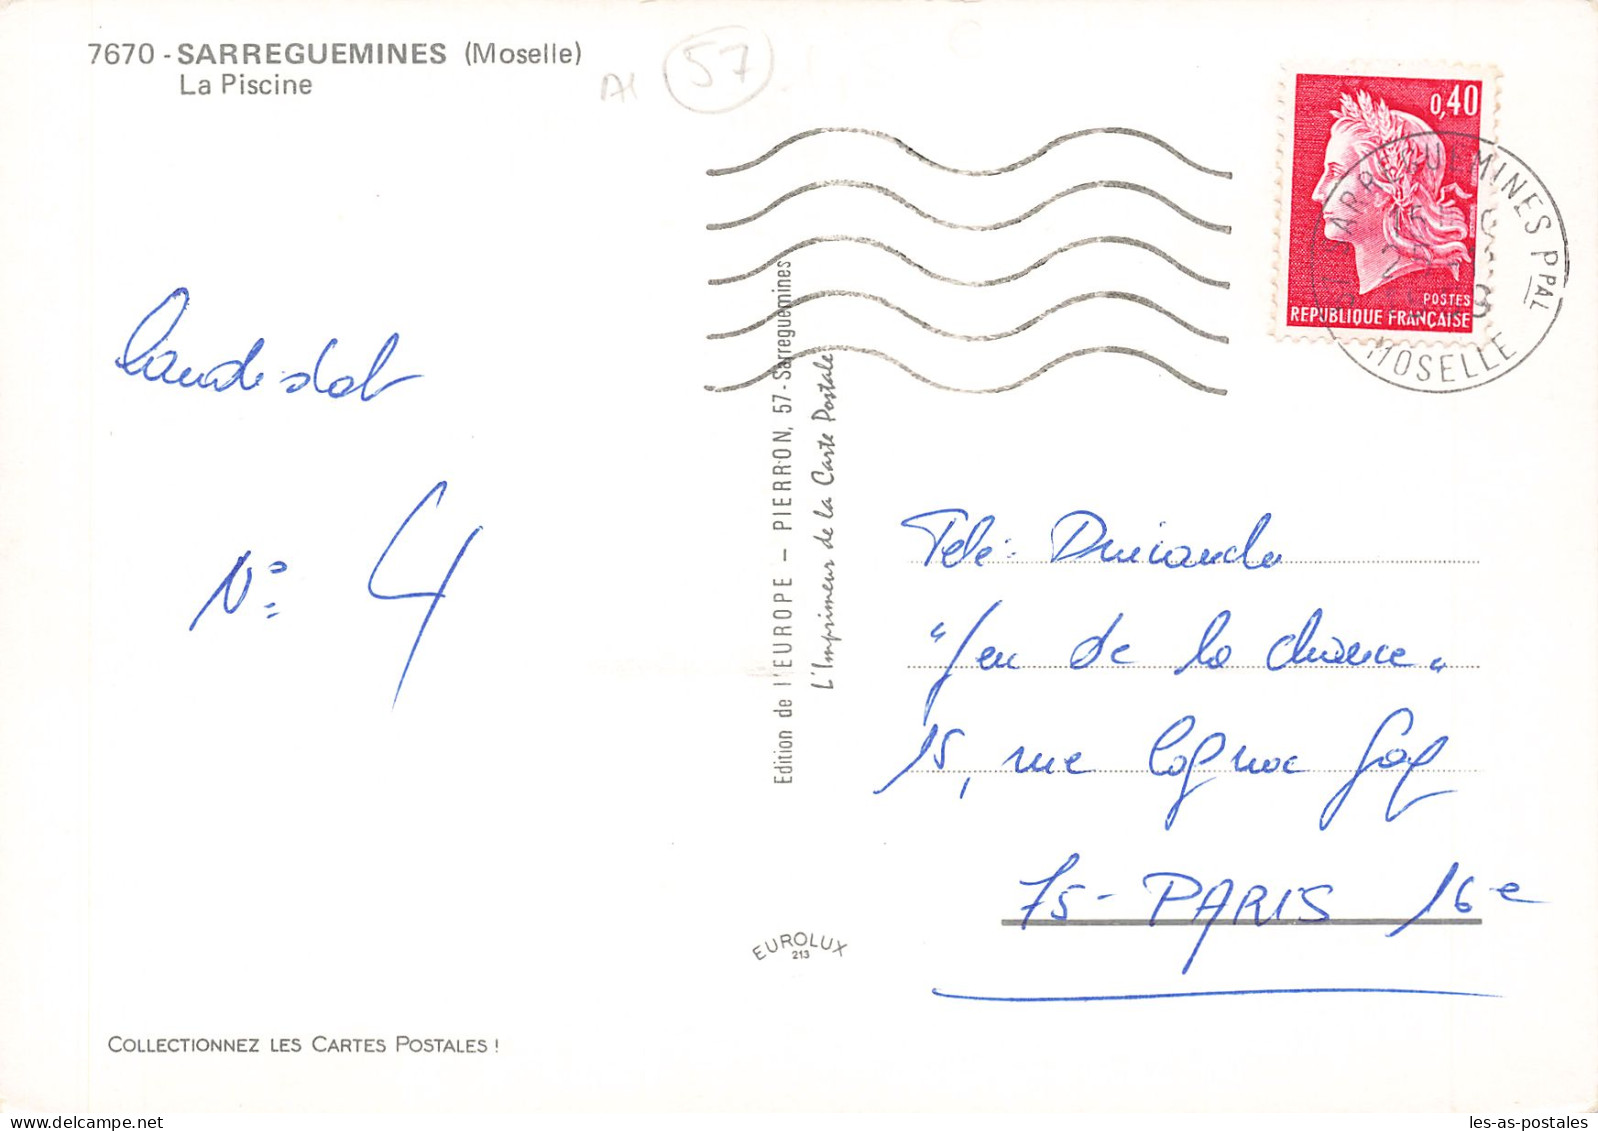 7670 - SARREGUEMINES (Moselle)
La Piscine
57
0,40
POSTES
REPUBLIQUE FRANÇAISE
SARREGUEMINES PPAL
MOSELLE
Candidat
N° 4
Edition de l'EUROPE – PIERRON, 57 - Sarreguemines
L'Imprimeur de la Carte Postale
Télé. Dimanche
"Jeu de la chance"
15, rue Cognac Jay
75 - PARIS 16e
EUROLUX
213
COLLECTIONNEZ LES CARTES POSTALES !
les-as-postales